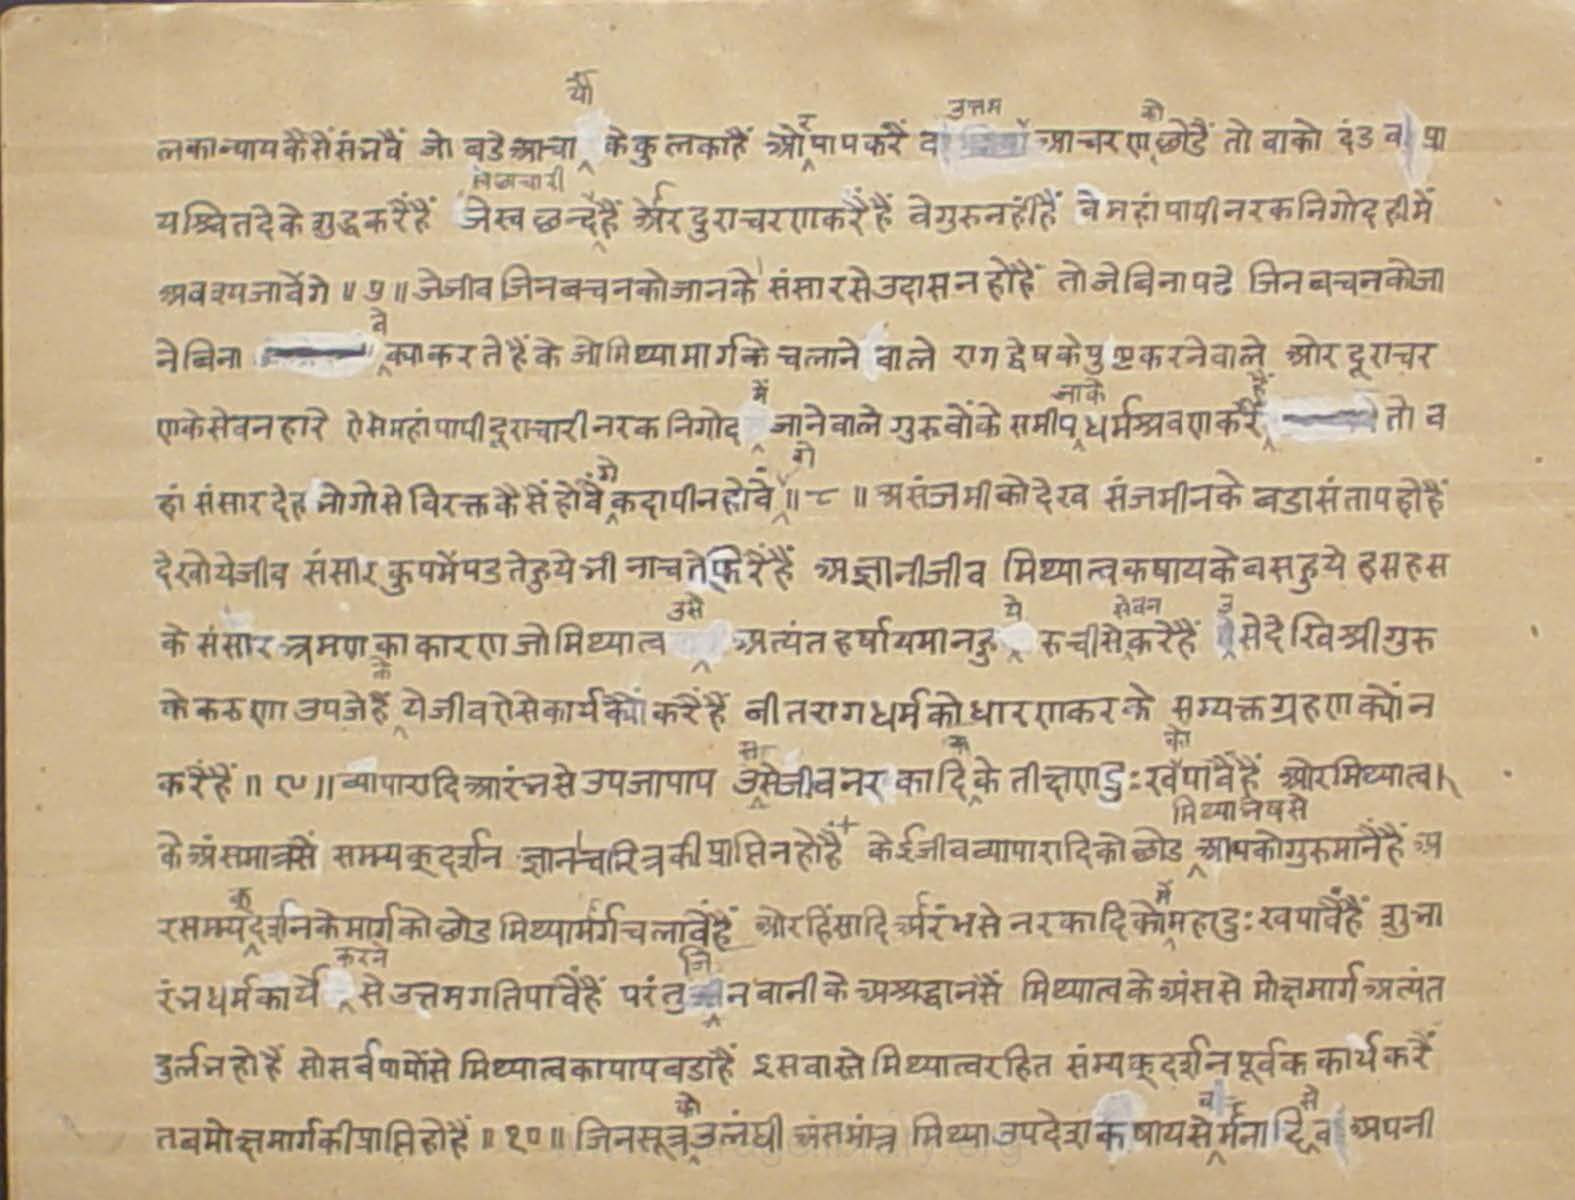 लकान्यायकैसेंसंभवैं जो बडे आचार्यों के कुलकाहैं और पापकरैं व उत्तम आचरण को छोडैं तो वाको दंड व प्रा
यश्चितदेके शुद्धकरैंहैं जे स्वछन्द स्वेछाचारी हैं और दुराचरणकरैंहैं वेगुरुनहींहैं वेमहांपापीनरकनिगोदहीमें
अवश्यजावेंगे ॥७॥ जेजीव जिनबचनकोजानके संसारसेउदासनहोहैं तो जेबिनापढे जिनबचनकोजा
नेबिना वे क्याकरतेहैंके जोमिथ्यामार्गकेचलानेवाले रागद्वेषकेपुष्टकरनेवाले ओर दूराचर
णकेसेवनहारे ऐसेमहांपापीदूराचारीनरकनिगोदमें जानेवाले गुरुवोंके समीप जाके धर्मश्रवणकरेंहैं तो व
हां संसारदेहभोगोसेविरक्तकैसेंहोवेंगे कदापीनहोवेंगे ॥८॥ असंजमीकोदेख संजमीनके बडासंतापहोहैं
देखोयेजीव संसारकुपमेंपडतेहुयेभी नाचतेफिरेंहैं अज्ञानीजीव मिथ्यात्वकषायकेबसहुये हसहस
के संसारभ्रमणकाकारणजोमिथ्यात्व उसे अत्यंतहर्षायमानहुये रुचीसे सेवन करेहैं उसेदेखिश्रीगुरु
केकरुणा उपजेहैं के येजीवऐसेकार्यक्योंकरैंहैं बीतरागधर्मकोधारणकरके सम्यक्तग्रहणक्योंन
करैंहैं ॥९॥ व्यापारादिआरंभसेउपजापाप उससेजीवनरकादिकके तीक्ष्णदुःखकोपावैंहैं ओरमिथ्यात्व
केअंसमात्रसें सम्यक्दर्शन ज्ञानचारित्रकीप्राप्तिनहोहैं केईजीवव्यापारादिकोछोड मिथ्याभेषसे आपकोगुरुमानैंहैं अ
रसम्यक्दर्शनकेमार्गकोछोड मिथ्यामार्गचलावेंहैं ओरहिंसादिआरंभसे नरकादिकोमें महादुःखपावैंहैं शुभा
रंभधर्मकार्य करने से उत्तमगतिपावैंहैं परंतु जिनवानीके अश्रद्धानसें मिथ्यात्वकेअंससे मोक्षमार्ग अत्यंत
दुर्लभहोहैं सोसर्वपापोंसे मिथ्यात्वकापापबडाहैं इसवास्ते मिथ्यात्वरहित संम्यक्दर्शनपूर्वककार्यकरैं
तबमोक्षमार्गकीप्राप्तिहोहैं ॥१०॥ जिनसूत्रको उलंघी अंसमांत्र मिथ्याउपदेश कषायसे अपनी